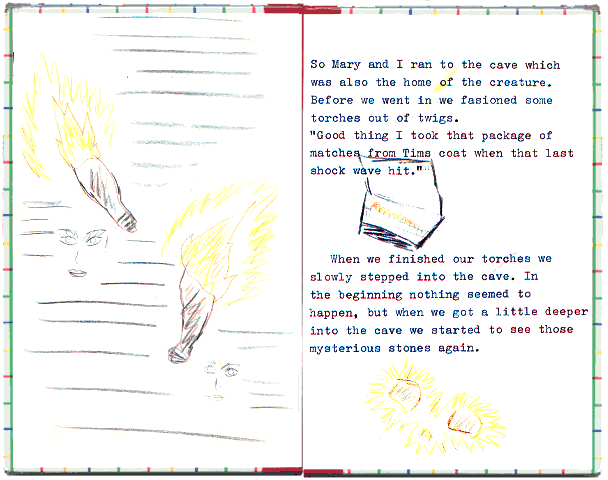 So Mary and I ran to the cave which
was also the home of the creature.
Before we went in we fasioned some
torches out of twigs.
"Good thing I took that package of
matches from Tims coat when that last
shock wave hit."
When we finished our torches we
slowly stepped into the cave. In
the beginning nothing seemed to
happen, but when we got a little deeper
into the cave we started to see those
mysterious stones again.